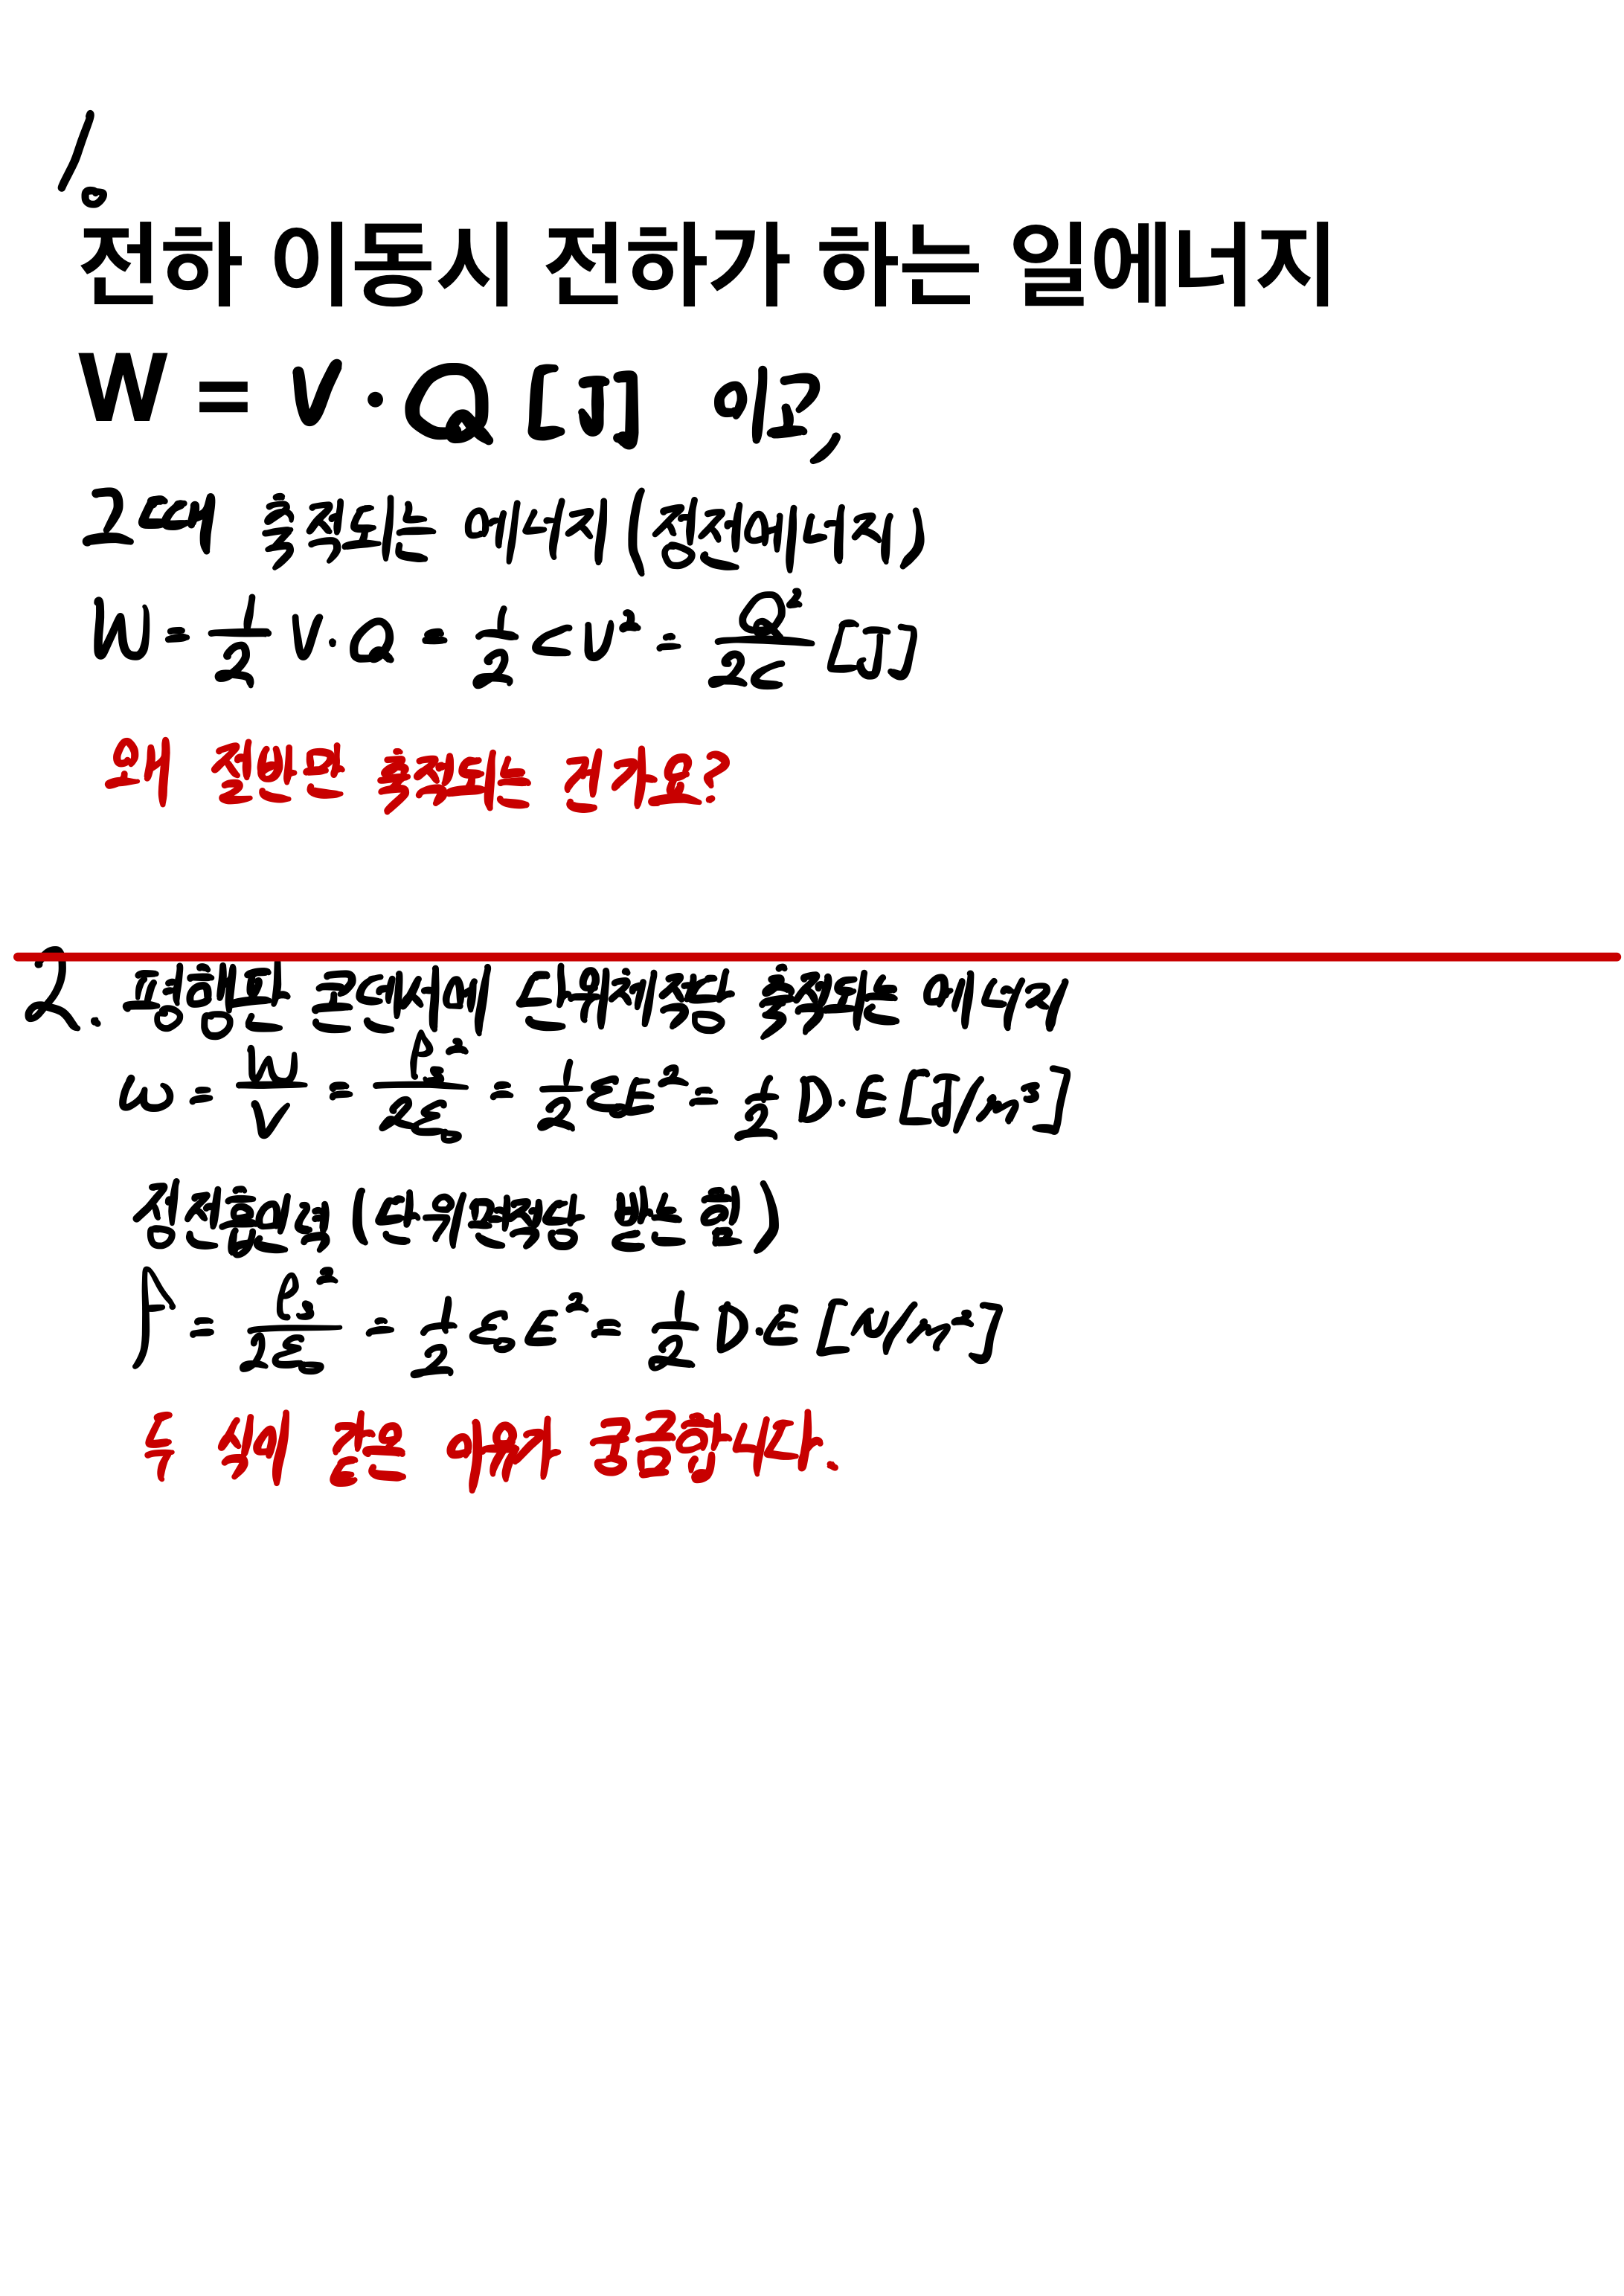 1.
전하 이동시 전하가 하는 일에너지
W = V · Q [J] 이고,
그때 축적되는 에너지 (정전에너지)
W = 1/2 V · Q = 1/2 C V² = Q²/2C [J]
왜 절반만 축적되는 건가요?
2. 평행판 콘덴서에 단위체적당 축적되는 에너지
ω = W/V = ρs²/2ε₀ = 1/2 ε₀E² = 1/2 D·E [J/m³]
정전흡입력 (단위면적당 받는 힘)
f = ρs²/2ε₀ = 1/2 ε₀ E² = 1/2 D·E [N/m²]
두 식이 같은 이유가 궁금합니다.